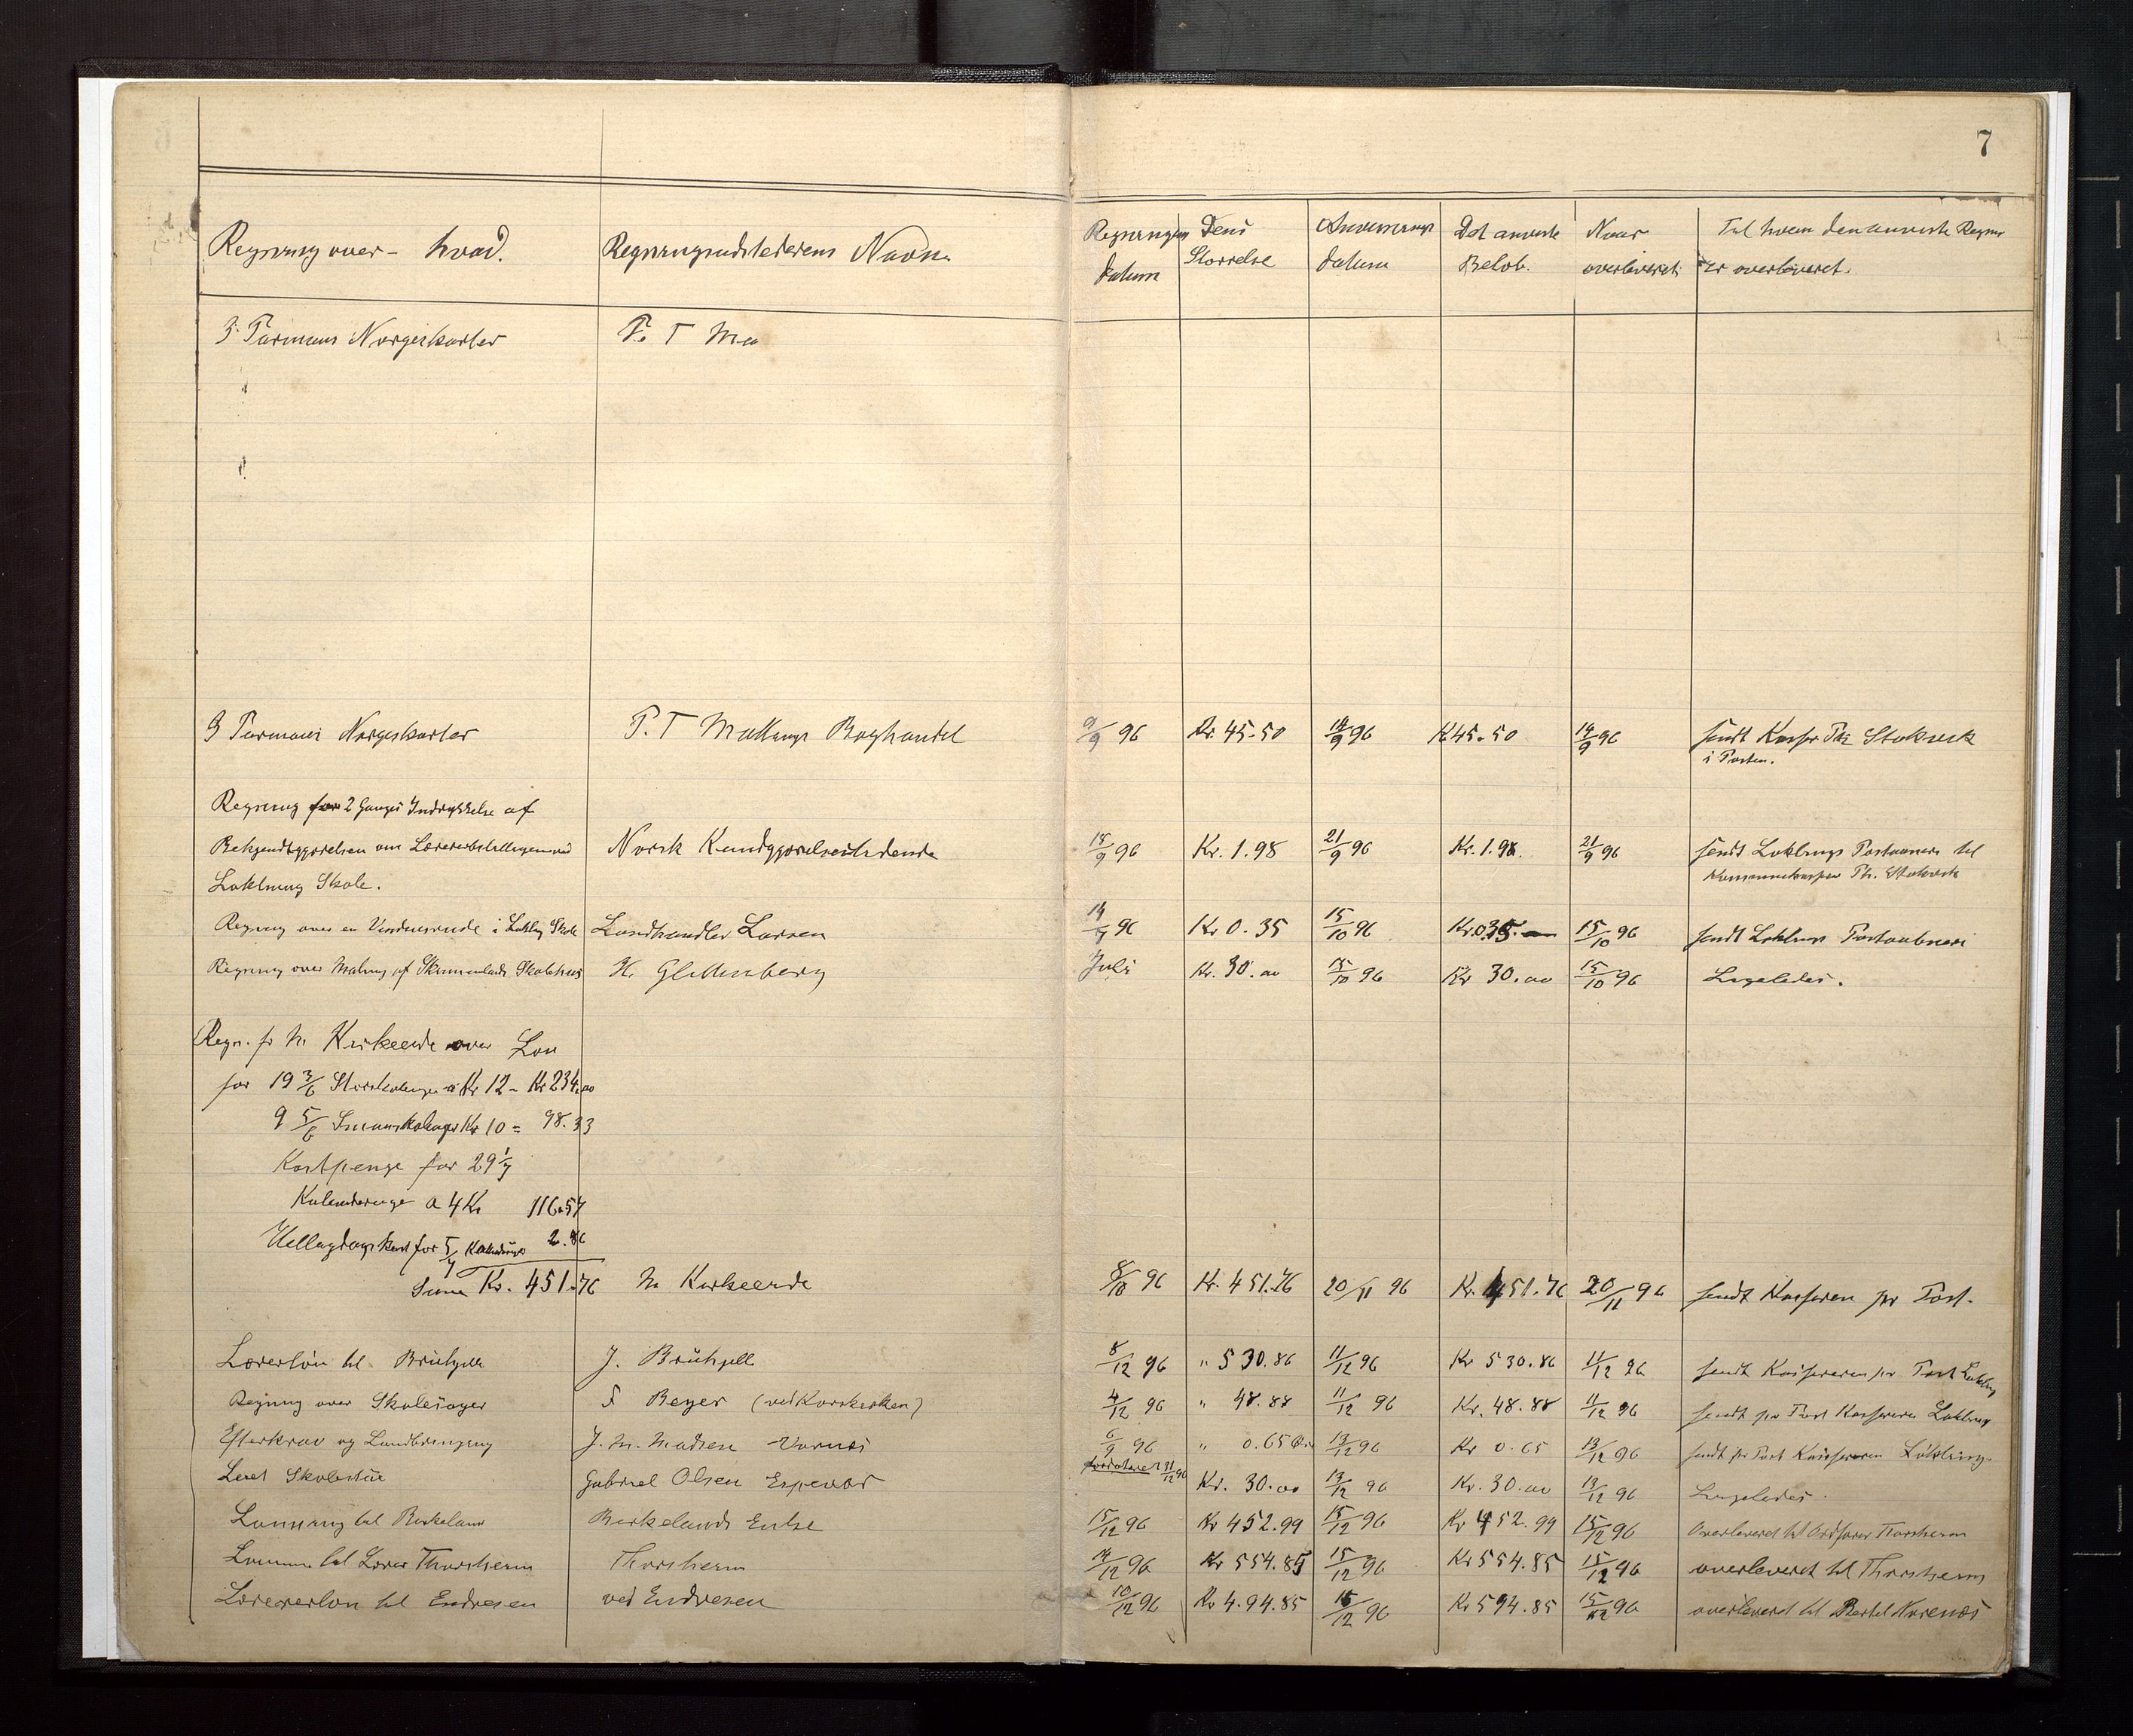 7
Regning over - hvad. Regningsudstederens Navn. Regningens Dens Anvisnings Det anviste Naar Til hvem den anviste Regning
datum Størrelse datum Beløb. overleveret. er overleveret.
3 Normans Norgeskarter P. T Ma
3 Normans Norgeskarter P. T Mallings Boghandel 9/9 96 Kr. 45.50 14/9 96 K 45.50 14/9 96 sendt Kasser Th. Stokvik
i Posten.
Regning for 2 Ganges Indrykkelse af
Bekjendtgjørelsen om Lærerbestillingen ved Norsk Kundgjørelsestidende 18/9 96 Kr. 1.98 21/9 96 Kr. 1.98. 21/9 96 sendt Løklings Postaabneri til
Løkling Skole. Kommunekasser Th. Stokvik
Regning over en Vinduesrude i Løkling Skole Landhandler Larsen 14/7 96 Kr 0.35 15/10 96 Kr. 0.35. 15/10 96 sendt Løklings Postaabneri
Regning over Maling af Skimmelands Skolehus H. Glettenberg Juli Kr. 30.00 15/10 96 Kr 30.00 15/10 96 Ligeledes.
Regn. fr N. Kirkeeide over Løn
for 19 3/6 Storskoleuger a Kr 12 - Kr 234.00
9 5/6 Smaaskoleuger Kr 10 = 98.33
Kostpenge for 29 1/7
Kalenderuger a 4 Kr 116.57
Helligdagskost for 5/7 Kalenderuge 2.86
Suma Kr. 451.76 N Kirkeeide 8/10 96 Kr. 451.76 20/11 96 Kr. 451.76 20/11 96 sendt Kasseren pr Post.
Lærerløn til Brühjell J. Brühjell 8/12 96 " 530.86 11/12 96 Kr 530.86 11/12 96 sendt Kassereren pr. Post Løkling
Regning over Skolesager F Beyer (ved Korskirken) 4/12 96 " 48.88 11/12 96 Kr. 48.88 11/12 96 sendt pr Post Kassereren Løkling
Efterkrav og Landbringning J. M. Madsen Vornes 6/9 96 " 0.65 Øre 13/12 96 Kr 0.65 13/12 96 sendt pr Post Kassereren Løkling
Leiet Skolestue Gabriel Olsen Espevær 31/12 96 Kr. 30.00 13/12 96 Kr. 30.00 13/12 96 Ligeledes.
Lønning til Birkeland Birkelands Enke 15/12 96 Kr 452.99 15/12 96 Kr 452.99 15/12 96 Overleveret til Ordfører Thorsheim
Lønning til Lærer Thorsheim Thorsheim 14/12 96 Kr 554.85 15/12 96 Kr 554.85 15/12 96 overleveret til Thorsheim
Lærerløn til Endresen ved Endresen 10/12 96 Kr 4.94.85 15/12 96 Kr 594.85 15/12 96 overleveret til Bertel Norenes